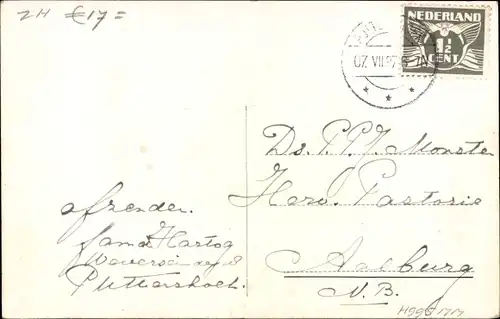 2H €17=
NEDERLAND
1½
CENT
07 VII
Ds. P.P.J. Monster
Herv. Pastorie
Aalburg
N.B.
afzender.
Hartog
Puttershoek.